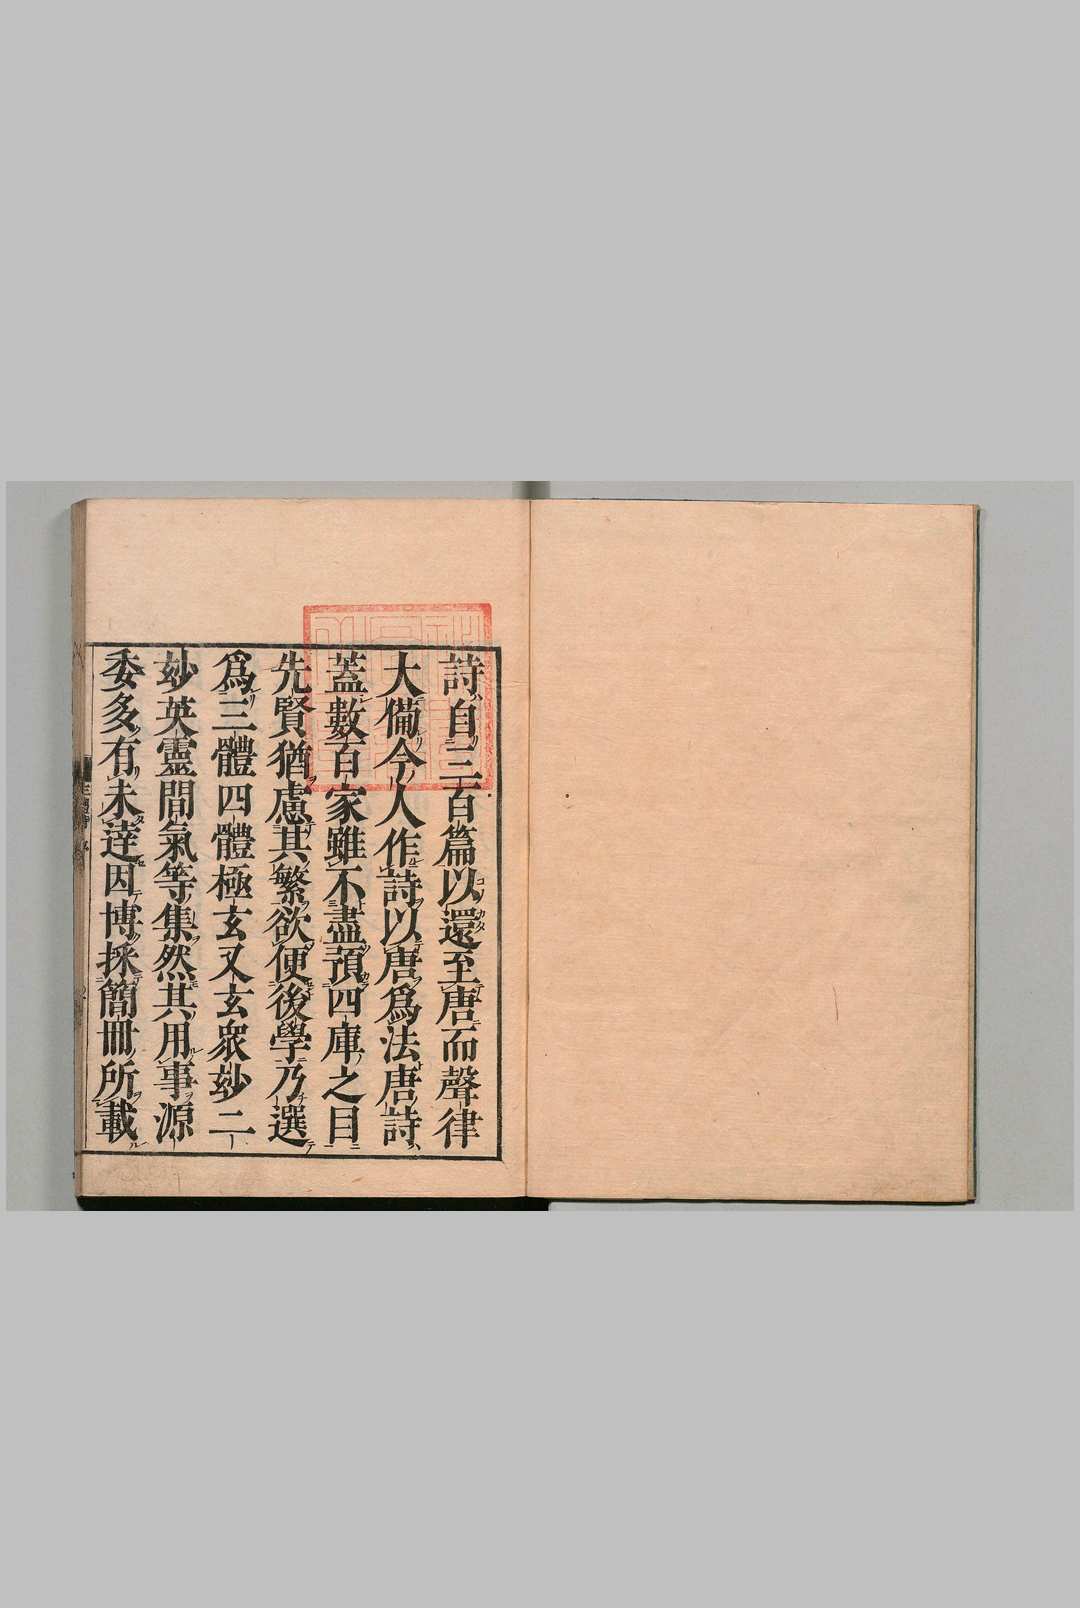 詩自三百篇以還至唐而聲律
大備今人作詩以唐爲法唐詩
蓋數百家雖不盡預四庫之目
先賢猶慮其繁欲便後學乃選
爲三體四體極玄又玄衆玅二
玅英靈間氣等集然其用事源
委多有未逹因博採簡冊所載